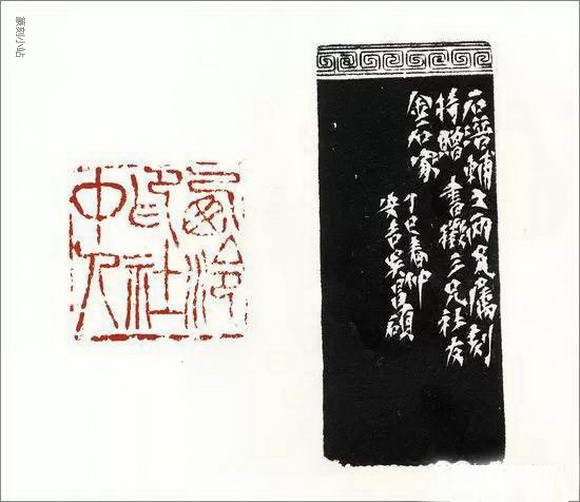 篆刻小站
西泠
印社
中人
石潛輔之兩兄屬刻
持贈書徵三兄社友
金石家
丁巳春仲
安吉吳昌碩